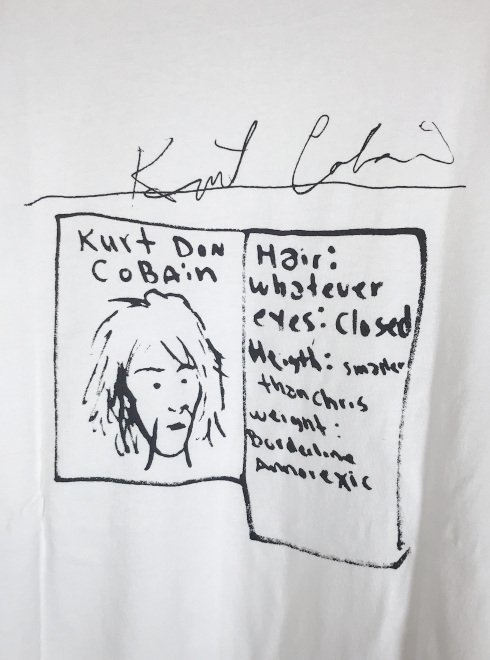 Kurt Cobain
Kurt Don
CoBAin
Hair:
whatever
eyes: Closed
Heigth: smaller
than chris
weight:
Borderline
Annorexic